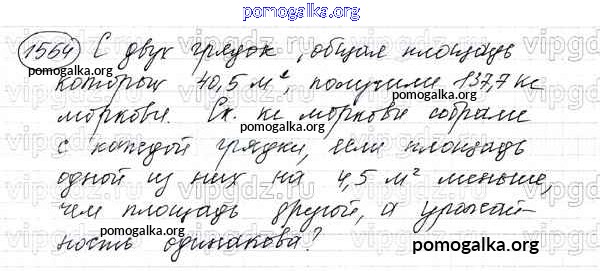 pomogalka.org
1564 С двух грядок, общая площадь
которых 40,5 м², получили 137,7 кг
моркови. Ск. кг моркови собрали
с каждой грядки, если площадь
одной из них на 4,5 м² меньше,
чем площадь другой, а урожай-
ность одинакова?
pomogalka.org
pomogalka.org
pomogalka.org
pomogalka.org
pomogalka.org
pomogalka.org
vipgdz.ru